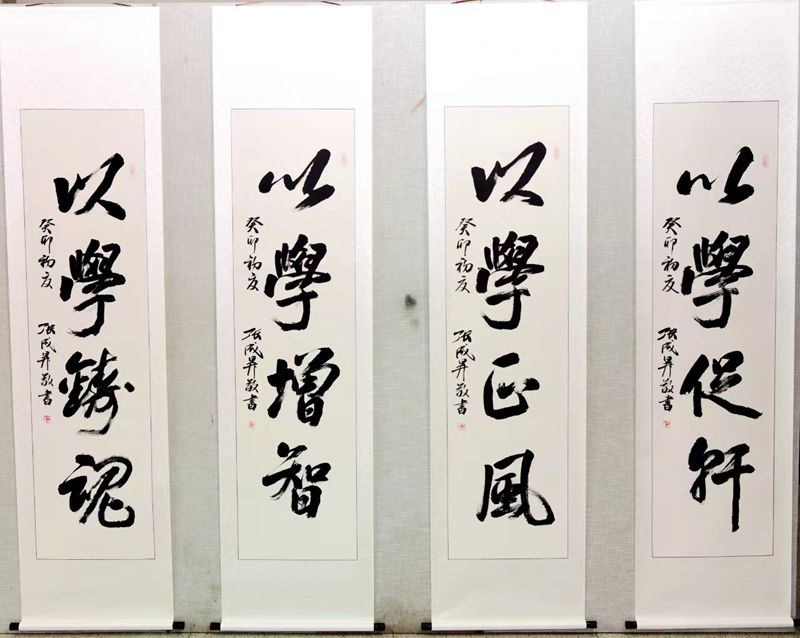 以學鑄魂
癸卯初夏 張成昇敬書
以學增智
癸卯初夏 張成昇敬書
以學正風
癸卯初夏 張成昇敬書
以學促幹
癸卯初夏 張成昇敬書